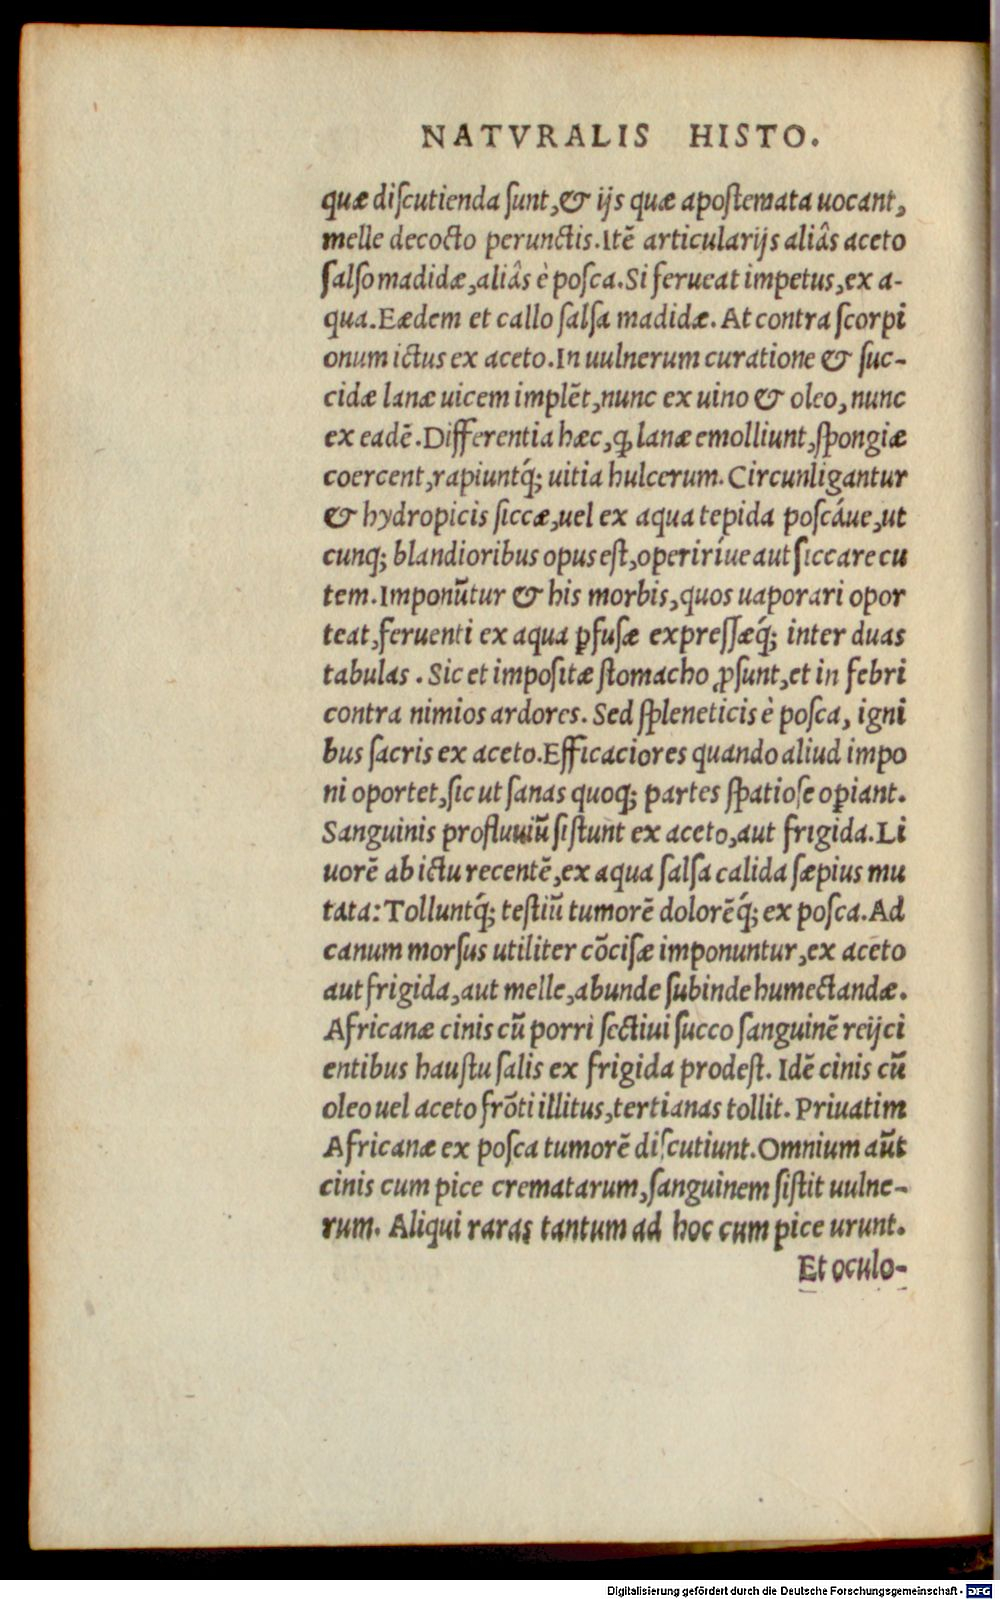 NATVRALIS HISTO.
quæ diſcutienda ſunt,& ijs quæ apoſtemata uocant,
melle decocto perunctis.Itē articularijs aliâs aceto
ſalſo madidæ,aliâs è poſca.Si ferueat impetus,ex a-
qua.Eædem et callo ſalſa madidæ.At contra ſcorpi
onum ictus ex aceto.In uulnerum curatione & ſuc-
cidæ lanæ uicem implēt,nunc ex uino & oleo,nunc
ex eadē.Differentia hæc,ꝙ lanæ emolliunt,ſpongiæ
coercent,rapiuntq́; uitia hulcerum. Circunligantur
& hydropicis ſiccæ,uel ex aqua tepida poſcáue,ut
cunq; blandioribus opus eſt,operiríue aut ſiccare cu
tem.Imponūtur & his morbis,quos uaporari opor
teat,feruenti ex aqua ꝑfuſæ expreſſæq́; inter duas
tabulas . Sic et impoſitæ ſtomacho ꝓſunt,et in febri
contra nimios ardores. Sed ſpleneticis è poſca, igni
bus ſacris ex aceto.Efficaciores quando aliud impo
ni oportet,ſic ut ſanas quoq; partes ſpatioſe oꝑiant.
Sanguinis profluuiū ſiſtunt ex aceto,aut frigida.Li
uorē ab ictu recentē,ex aqua ſalſa calida ſæpius mu
tata:Tolluntq́; teſtiū tumorē dolorēq́; ex poſca.Ad
canum morſus utiliter cōciſæ imponuntur,ex aceto
aut frigida,aut melle,abunde ſubinde humectandæ.
Africanæ cinis cū porri ſectiui ſucco ſanguinē reijci
entibus hauſtu ſalis ex frigida prodeſt. Idē cinis cū
oleo uel aceto frōti illitus,tertianas tollit. Priuatim
Africanæ ex poſca tumorē diſcutiunt.Omnium aūt
cinis cum pice crematarum,ſanguinem ſiſtit uulne-
rum. Aliqui raras tantum ad hoc cum pice urunt.
Et oculo-
Digitalisierung gefördert durch die Deutsche Forschungsgemeinschaft - DFG